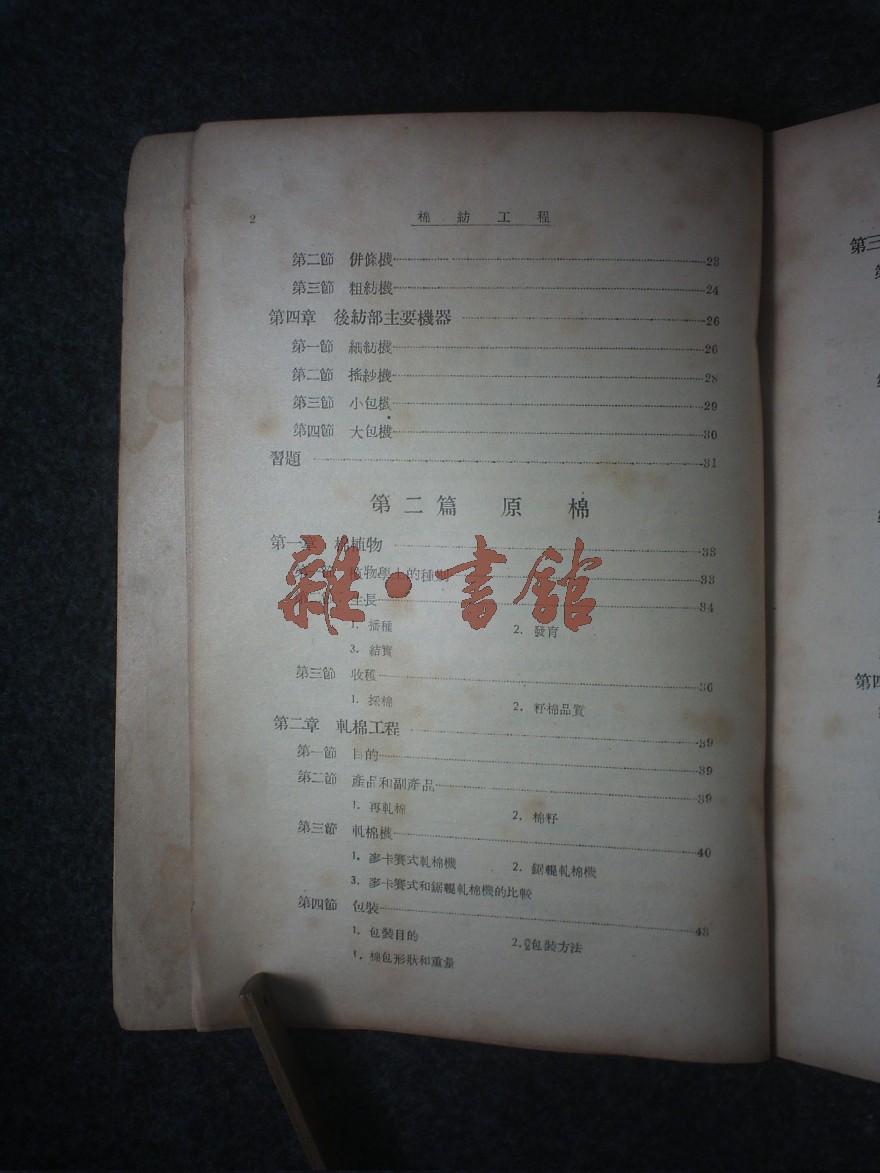 2 棉紡工程
第二節 併條機 23
第三節 粗紡機 24
第四章 後紡部主要機器 26
第一節 細紡機 26
第二節 搖紗機 28
第三節 小包機 29
第四節 大包機 30
習題 31
第二篇 原棉
第一章 棉植物 33
植物學上的種別 33
生長 34
1. 播種 2. 發育
3. 結實
第三節 收穫 36
1. 採棉 2. 籽棉品質
第二章 軋棉工程 39
第一節 目的 39
第二節 產品和副產品 39
1. 再軋棉 2. 棉籽
第三節 軋棉機 40
1. 麥卡賽式軋棉機 2. 鋸輥軋棉機
3. 麥卡賽式和鋸輥軋棉機的比較
第四節 包裝 48
1. 包裝目的 2. 包裝方法
棉包形狀和重量
雜·書館
第三
第四